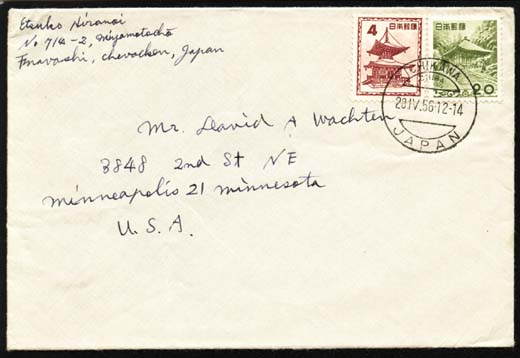 Etsuko Hiranoi
No 714-2, miyamotochō
Funavashi, chevacken, Japan
4
日本郵便
日本郵便
20
ICHIKAWA
28.IV.56.12-14
JAPAN
Mr. David A Wachten
3848 2nd St NE
minneapolis 21 minnesota
U.S.A.